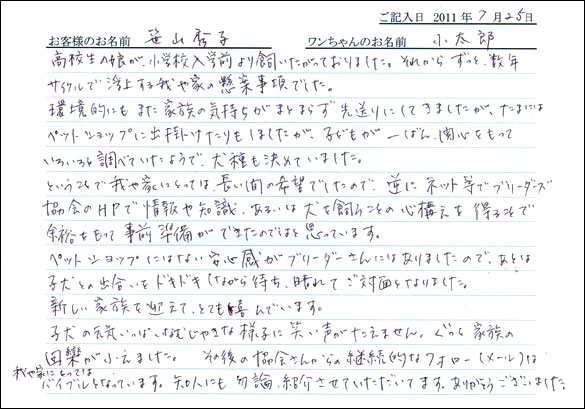 ご記入日 2011年7月25日
お客様のお名前 笹山 秀子 ワンちゃんのお名前 小太郎
高校生の娘が、小学校入学前より飼いたがっておりました。それからずっと、数年
サイクルで浮上する我や家の懸案事項でした。
環境的にもまた家族の気持ちがまとまらず先送りにしてきましたが、たまには
ペットショップに出掛けたりもしましたが、子どもが一ばん関心をもって
いろいろと調べていたようで、犬種も決めていました。
ということで我や家にとっては、長い間の希望でしたので、逆にネット等でブリーダーズ
協会のHPで情報や知識、あるいは犬を飼うことの心構えを得ることで
余裕をもって事前準備ができたのではと思っています。
ペットショップにはない安心感がブリーダーさんにはありましたので、あとは
子犬との出合いをドキドキしながら待ち、晴れてご対面となりました。
新しい家族を迎えて、とても喜んでいます。
子犬の元気いっぱい、なむじゃきな様子に笑い声がたえません。ぐっと家族の
団欒がふえました。 その後の協会さんからの継続的なフォロー(メール)は
我や家にとっては
バイブルとなっています。知人にも勿論、紹介させていただいてます。ありがとうございました。